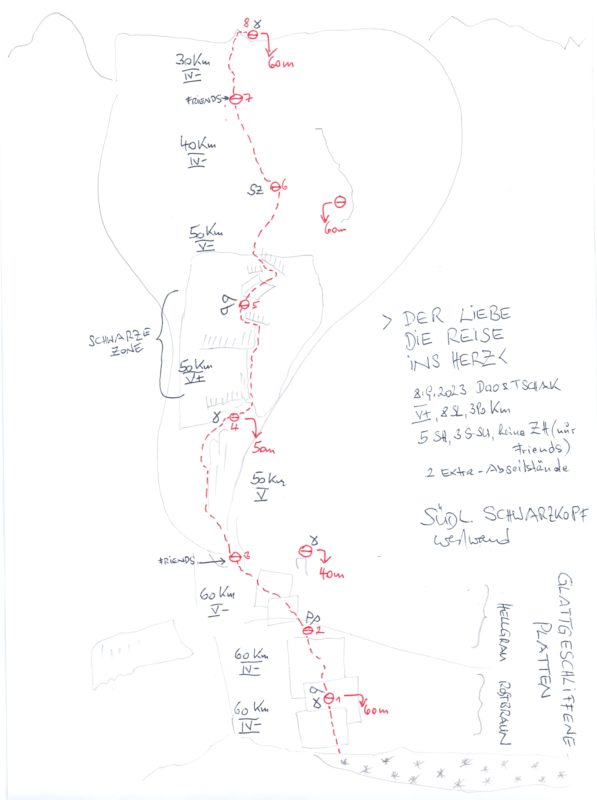 8
60m
30Km
IV-
FRIENDS
7
40Km
IV-
SZ
6
60m
50Km
V-
5
SCHWARZE
ZONE
50Km
V+
4
50m
50Km
V
> DER LIEBE
DIE REISE
INS HERZ <
8.9.2023 DAO & TSCHAK
V+, 8 SL, 390 Km
5 SH, 3 S-SU, keine ZH (nur
Friends)
2 Extra-Abseilstände
SÜDL. SCHWARZKOPF
Westwand
FRIENDS
3
40m
60Km
V-
2
60Km
IV-
1
60m
60Km
IV-
HELLGRAU
ROTBRAUN
GLATTGESCHLIFFENE
PLATTEN